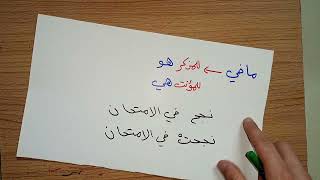 مافي ← للمذكر هو
للمؤنث هي
نجح في الامتحان
نجحت في الامتحان